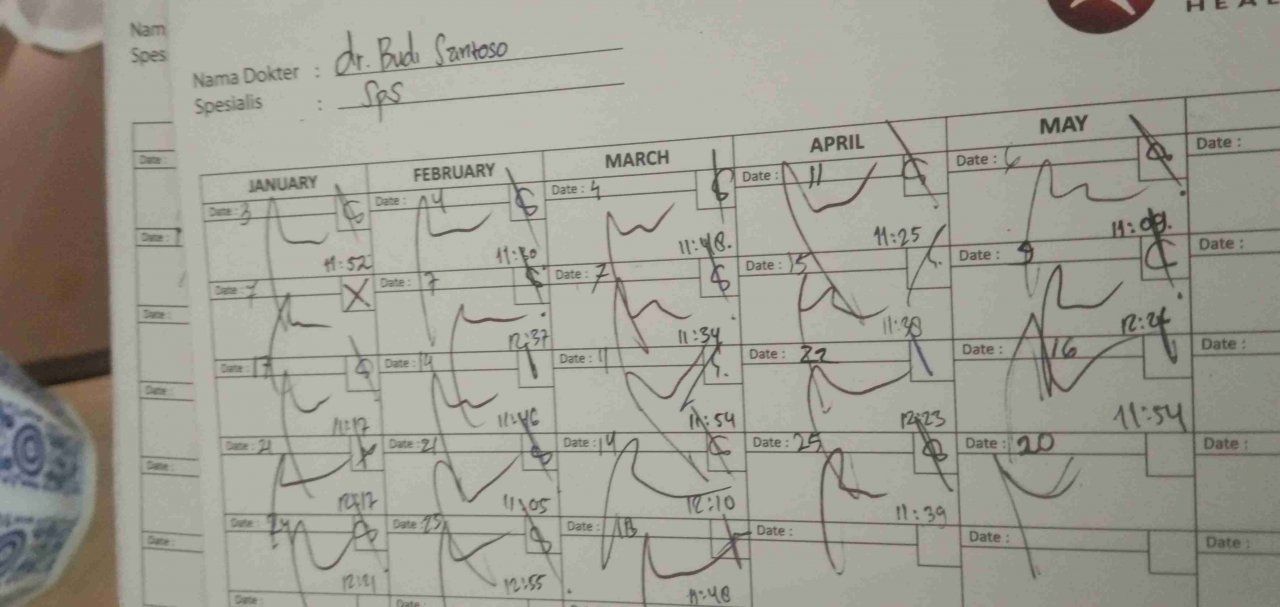 HEAL
Nam
Spes
Nama Dokter : dr. Budi Santoso
Spesialis : Sps
JANUARY FEBRUARY MARCH APRIL MAY
Date : 3 Date : 4 Date : 4 Date : 11 Date : 6 Date :
11:52 11:30 11:48. 11:25 11:09.
Date : 7 Date : 7 Date : 7 Date : 15 Date : 9 Date :
12:37 11:34 11:38 12:26
Date : 17 Date : 14 Date : 11 Date : 22 Date : 16 Date :
11:17 11:46 11:54 12:23 11:54
Date : 21 Date : 21 Date : 14 Date : 25 Date : 20 Date :
12:17 11:05 12:10 11:39
Date : 24 Date : 25 Date : 18 Date : Date : Date :
12:21 12:55 11:48
Date : Date :